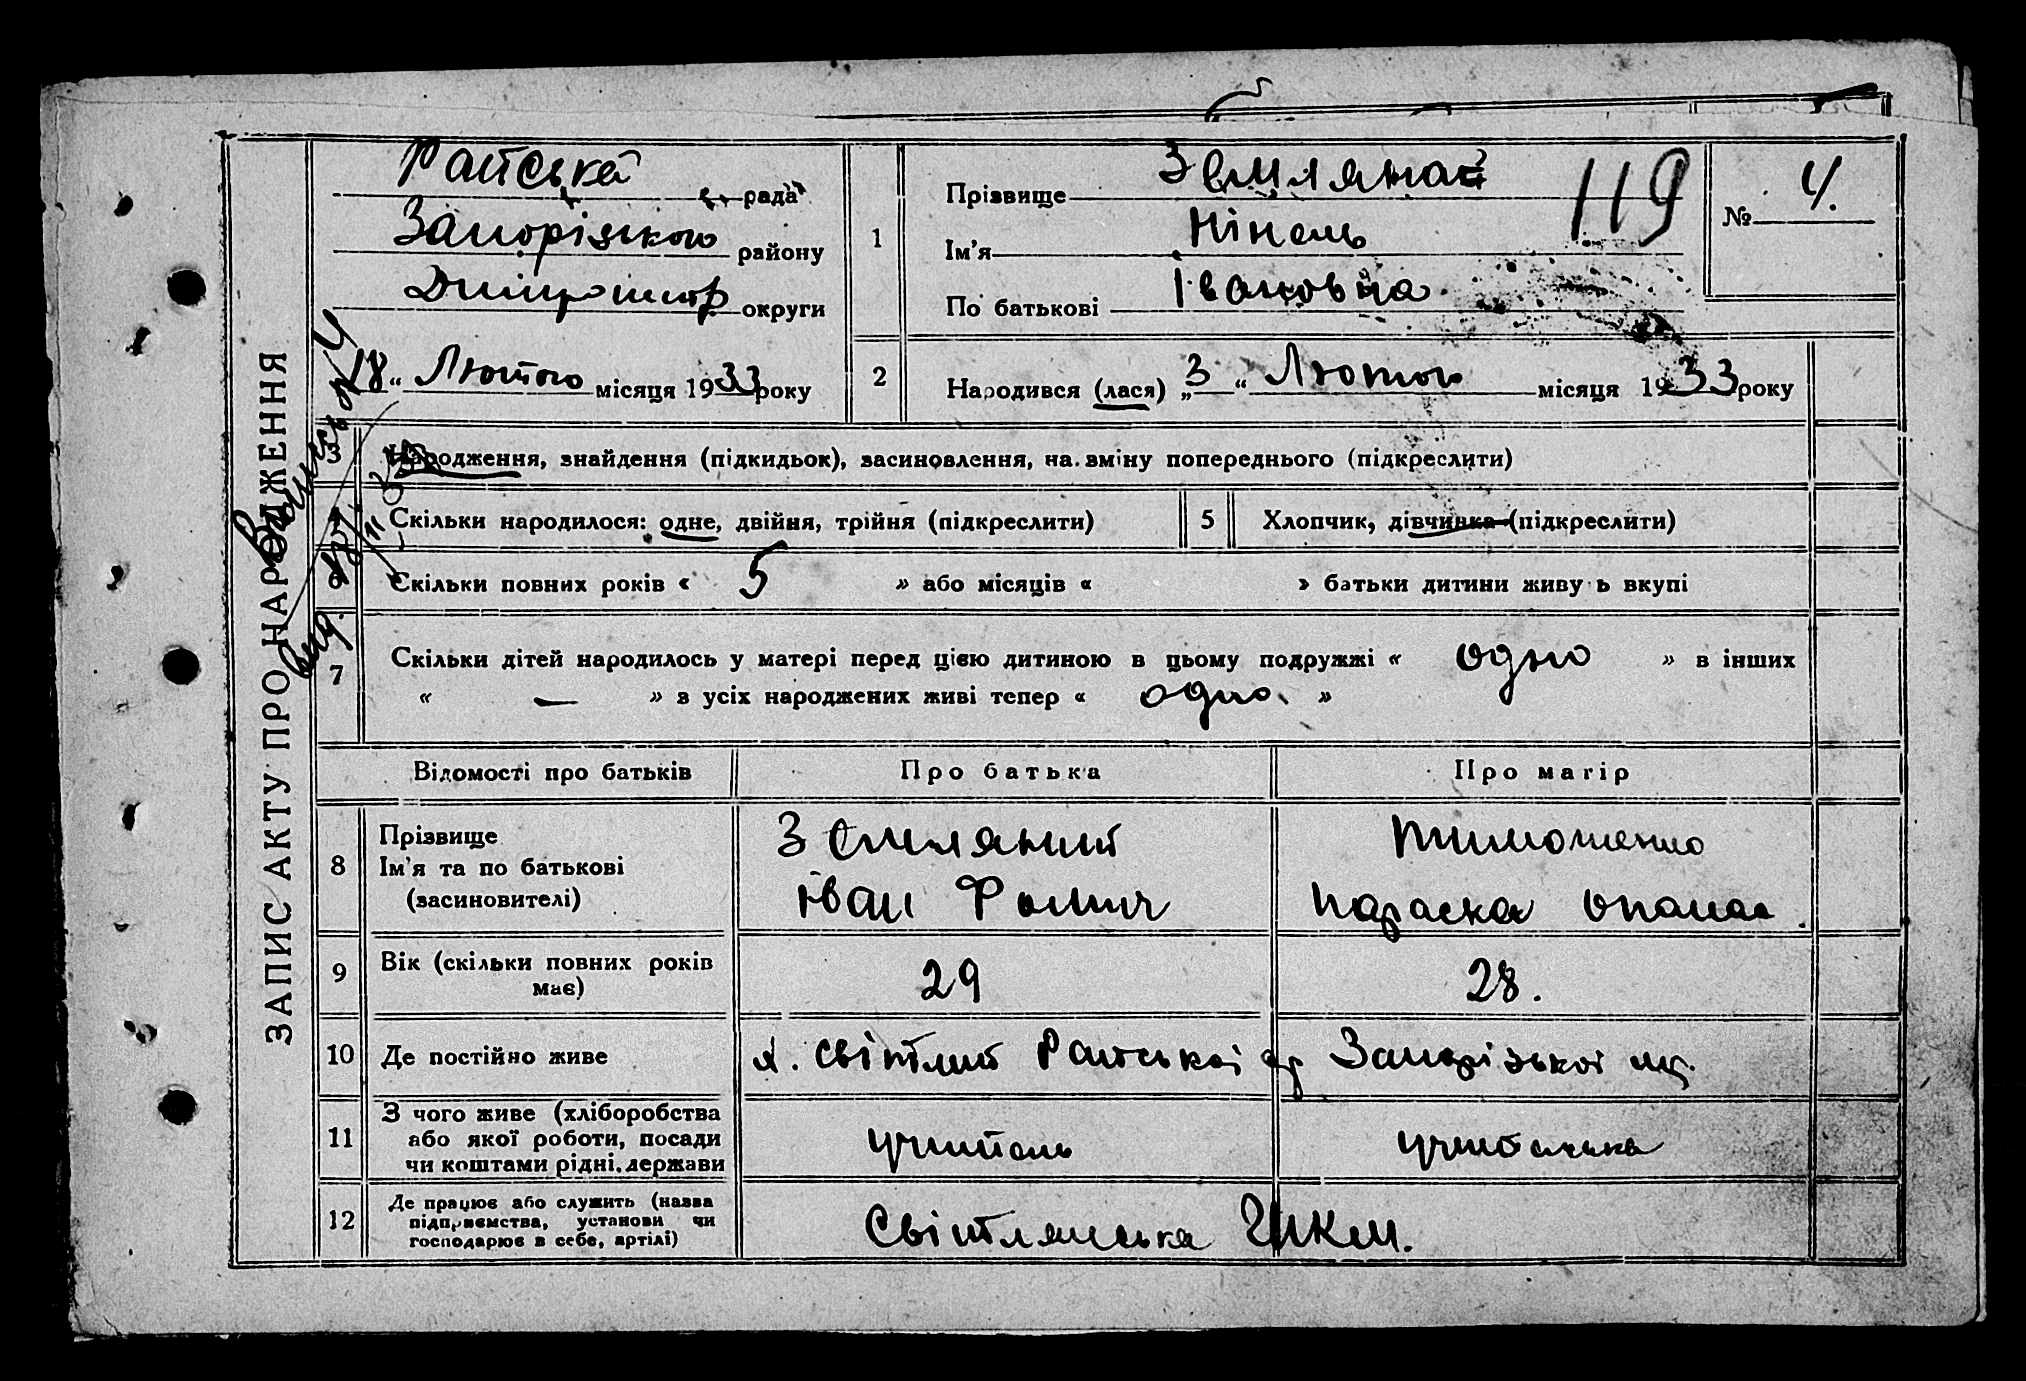 ЗАПИС АКТУ ПРО НАРОДЖЕННЯ
Райська рада
Запорізького району
Дніпропетр округи
18 " Лютого місяця 1933 року
1
Прізвище Земляная
Ім'я Нінель
По батькові Івановна
119
№ 4.
2 Народився (лася) „ 3 " Лютого місяця 1933 року
3 Народження, знайдення (підкидьок), засиновлення, на зміну попереднього (підкреслити)
Скільки народилося: одне, двійня, трійня (підкреслити) 5 Хлопчик, дівчинка (підкреслити)
6 Скільки повних років « 5 » або місяців « » батьки дитини живу ь вкупі
7 Скільки дітей народилось у матері перед цією дитиною в цьому подружжі « одно » в інших
« — » з усіх народжених живі тепер « одно. »
Відомості про батьків Про батька Про матір
8 Прізвище Земляний Тимошенко
Ім'я та по батькові
(засиновителі) Іван Фомич Параска Опанас.
9 Вік (скільки повних років має) 29 28.
10 Де постійно живе х. Світлий Райської ср Запорізької мц.
11 З чого живе (хліборобства
або якої роботи, посади
чи коштами рідні, держави учитель учителька
12 Де працює або служить (назва
підприємства, установи чи
господарює в себе, артілі) Світлянська